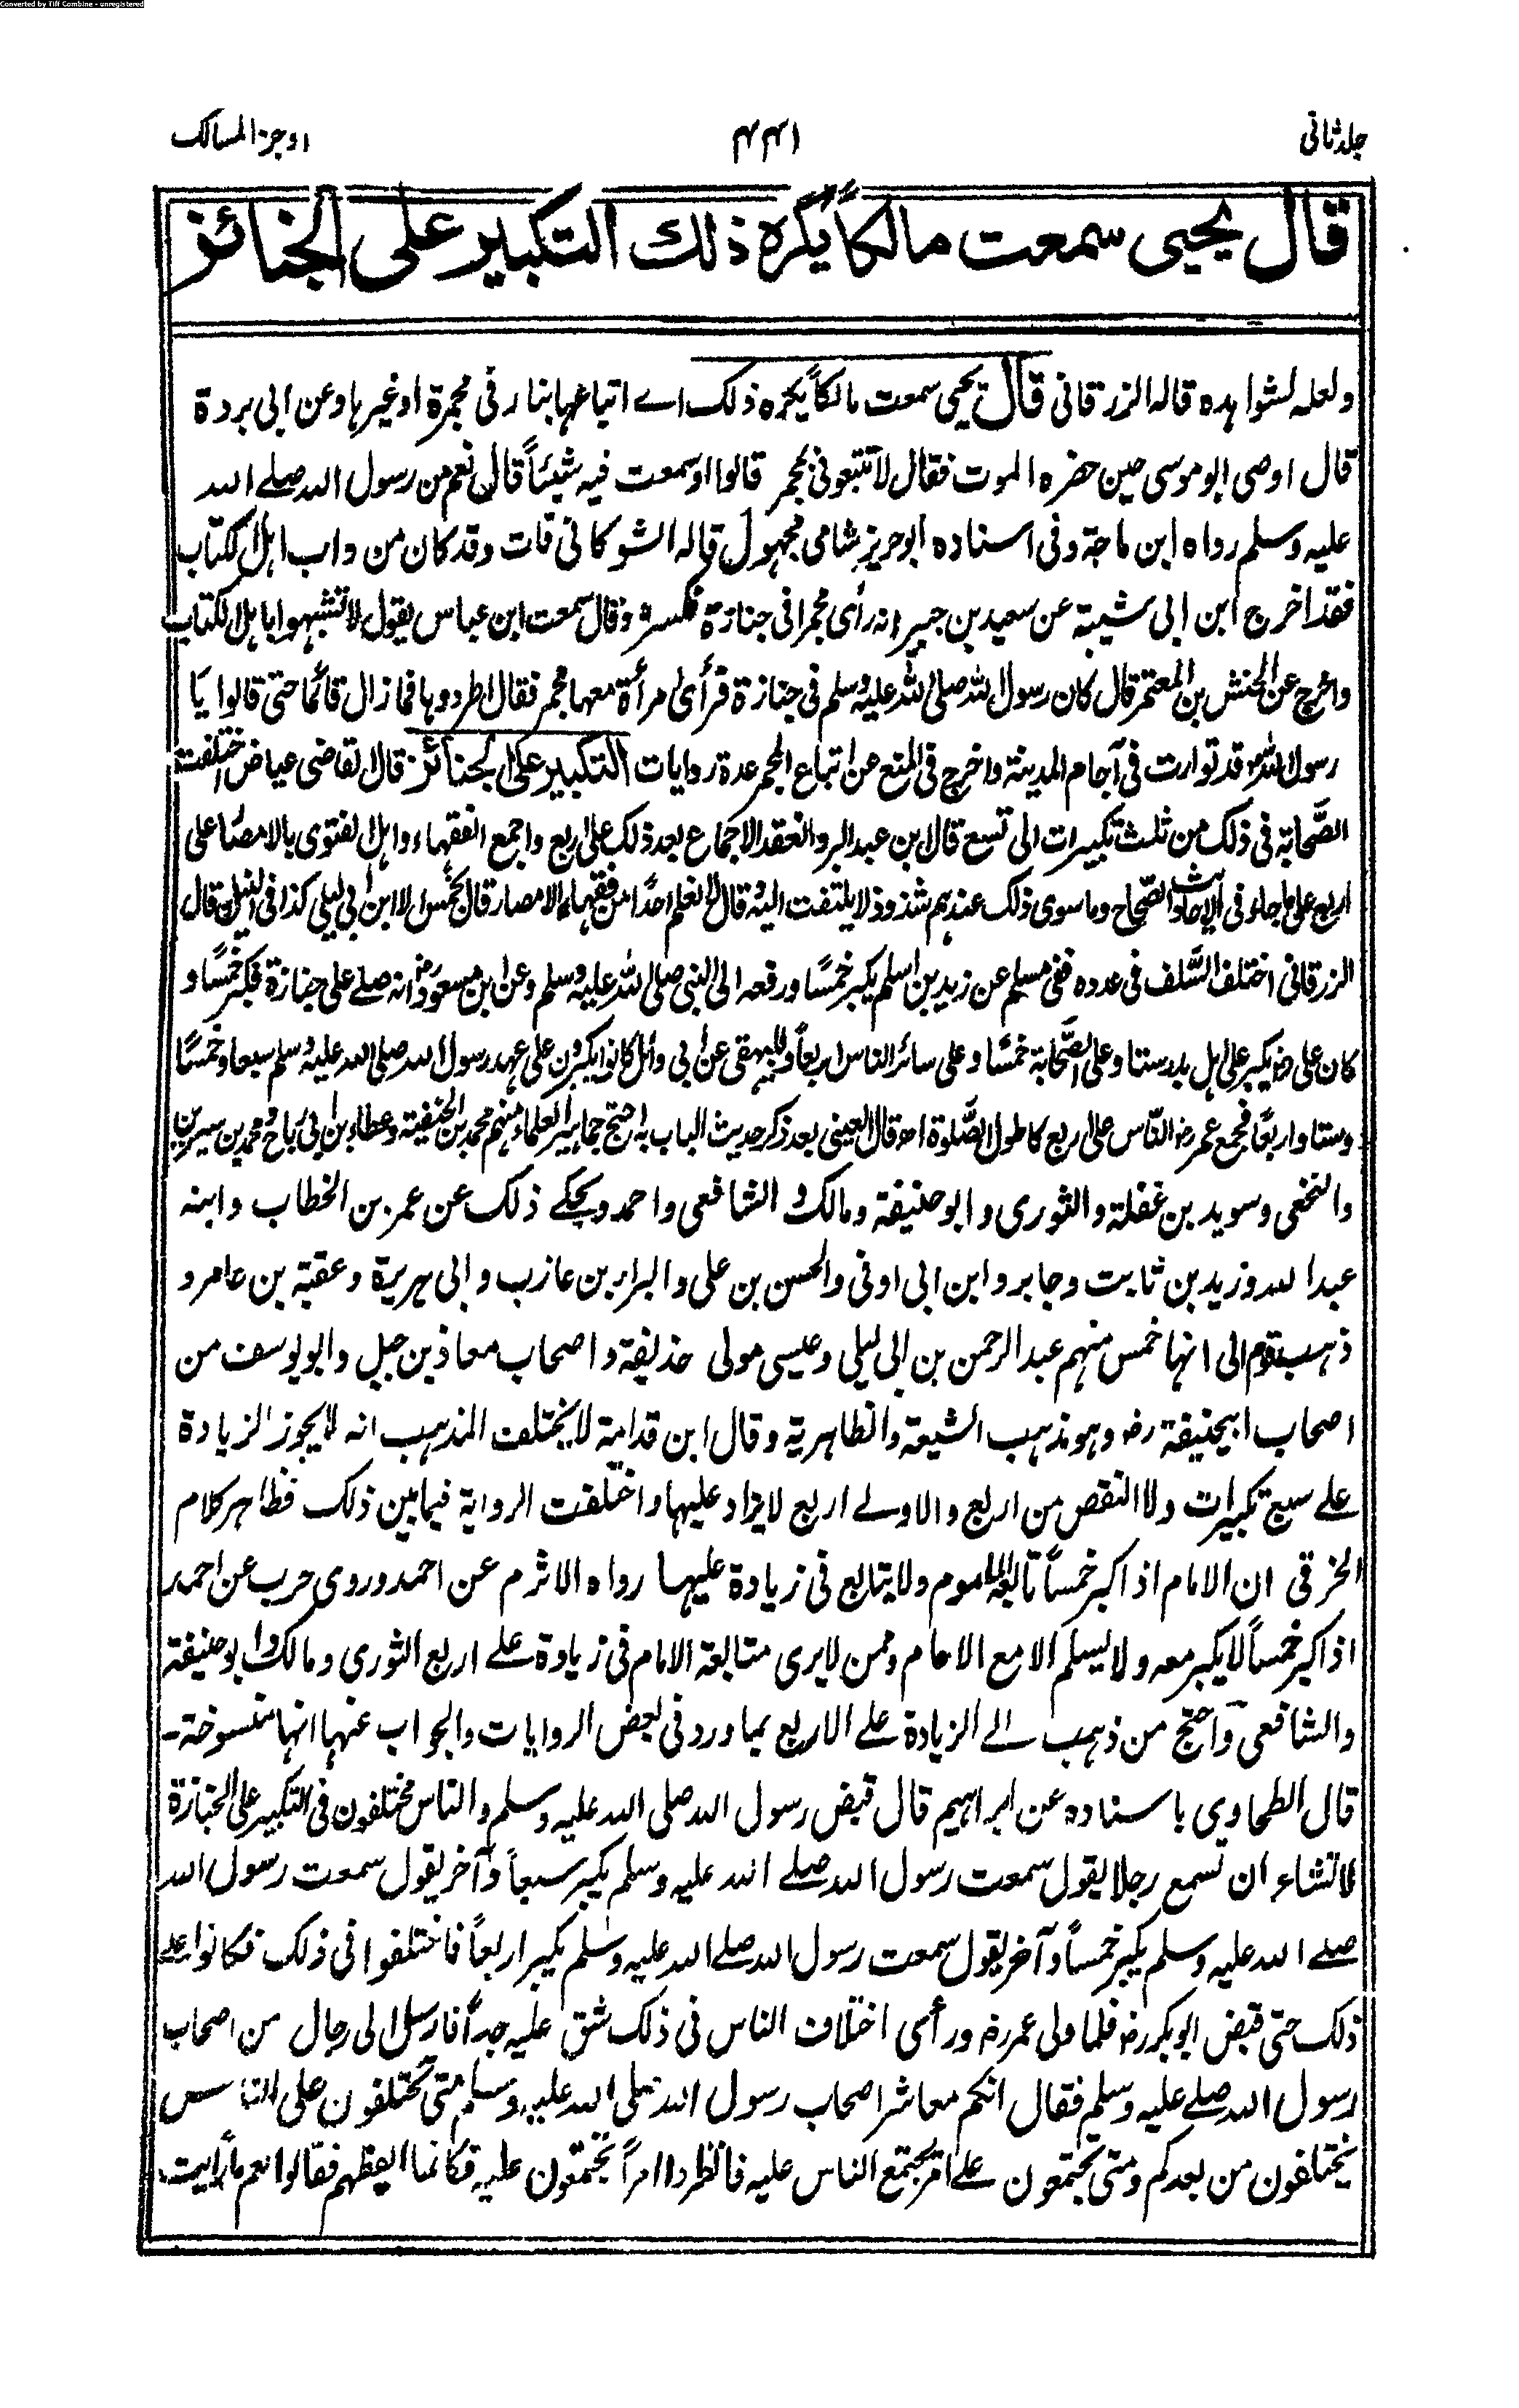 Converted by Tiff Combine - unregistered
جلد ثانی
۴۴۱
اوجز المسالک
قال یحیی سمعت مالکاً یکره ذلک التکبیر علی الجنائز
ولعله لشواهده قاله الزرقانی قال یحیی سمعت مالکاً یکره ذلک اے اتباعها بنار فی مجمرة او غیرها وعن ابی بردة
قال اوصی ابو موسی حین حضره الموت فقال لا تتبعونی بمجمر قالوا او سمعت فیه شیئاً قال نعم من رسول الله صلے الله
علیه وسلم رواه ابن ماجة وفی اسناده ابو حریز شامی مجهول قاله الشوکانی قلت وقد کان من داب اهل الکتاب
فقد اخرج ابن ابی شیبة عن سعید بن جبیر انه رأی مجمرا فی جنازة فکسره وقال سمعت ابن عباس یقول لا تشبهوا باهل الکتاب
واخرج عن الحنش بن المعتمر قال کان رسول الله صلی الله علیه وسلم فی جنازة فرأی امرأة معها مجمر فقال اطردوها فما زال قائما حتی قالوا یا
رسول الله قد توارت فی آجام المدینة واخرج فی المنع عن اتباع المجمر عدة روایات التکبیر علی الجنائز قال القاضی عیاض اختلفت
الصحابة فی ذلک من ثلث تکبیرات الی تسع قال ابن عبد البر وانعقد الاجماع بعد ذلک علی اربع واجمع الفقهاء واهل الفتوی بالامصار علی
اربع علی ما جاء فی الاحادیث الصحاح وما سوی ذلک عندهم شذوذ لا یلتفت الیه وقال لا نعلم احدا من فقهاء الامصار قال بخمس الا ابن ابی لیلی کذا فی النیل قال
الزرقانی اختلف السلف فی عدده ففی مسلم عن زید بن اسلم یکبر خمسًا ورفعه الی النبی صلی الله علیه وسلم وعن ابن مسعود رض انه صلے علی جنازة فکبر خمسًا و
کان علی رض یکبر علی اهل بدر ستا وعلی الصحابة خمسًا وعلی سائر الناس اربعاً وللبیهقی عن ابی وائل کانوا یکبرون علی عهد رسول الله صلی الله علیه وسلم سبعا وخمسًا
وستا واربعًا فجمع عمر رض الناس علی اربع کاطول الصلوة اه قال العینی بعد ذکر حدیث الباب به احتج جماهیر العلماء منهم محمد بن الحنفیة وعطاء بن ابی رباح ومحمد بن سیرین
والنخعی وسوید بن غفلة والثوری وابو حنیفة ومالک والشافعی واحمد ویحکے ذلک عن عمر بن الخطاب وابنه
عبد الله وزید بن ثابت وجابر وابن ابی اوفی والحسن بن علی والبراء بن عازب وابی هریرة وعقبة بن عامر و
ذهب قوم الی انها خمس منهم عبد الرحمن بن ابی لیلی وعیسی مولی حذیفة واصحاب معاذ بن جبل وابو یوسف من
اصحاب ابیحنیفة رض وهو مذهب الشیعة والظاهریة وقال ابن قدامة لا یختلف المذهب انه لا یجوز الزیادة
علے سبع تکبیرات ولا النقص من اربع والاولے اربع لا یزاد علیها واختلفت الروایة فیما بین ذلک فظاهر کلام
الخرقی ان الامام اذا کبر خمساً تابعه الماموم ولا یتابع فی زیادة علیها رواه الاثرم عن احمد وروی حرب عن احمد
اذا کبر خمساً لا یکبر معه ولا یسلم الا مع الامام وممن لا یری متابعة الامام فی زیادة علے اربع الثوری ومالک وابو حنیفة
والشافعی واحتج من ذهب الے الزیادة علے الاربع بما ورد فی بعض الروایات والجواب عنها انها منسوخة-
قال الطحاوی باسناده عن ابراهیم قال قبض رسول الله صلی الله علیه وسلم والناس مختلفون فی التکبیر علی الجنازة
لا تشاء ان تسمع رجلا یقول سمعت رسول الله صلے الله علیه وسلم یکبر سبعاً وآخر یقول سمعت رسول الله
صلے الله علیه وسلم یکبر خمساً وآخر یقول سمعت رسول الله صلے الله علیه وسلم یکبر اربعاً فاختلفوا فی ذلک فکانوا علے
ذلک حتی قبض ابو بکر رض فلما ولی عمر رض ورأی اختلاف الناس فی ذلک شق علیه جداً فارسل الی رجال من اصحاب
رسول الله صلے علیه وسلم فقال انکم معاشر اصحاب رسول الله صلی الله علیه وسلم متی تختلفون علی الناس
یختلفون من بعدکم ومتی تجتمعون علے امر یجتمع الناس علیه فانظروا امراً تجتمعون علیه فکانما ایقظهم فقالوا نعم ما رأیت